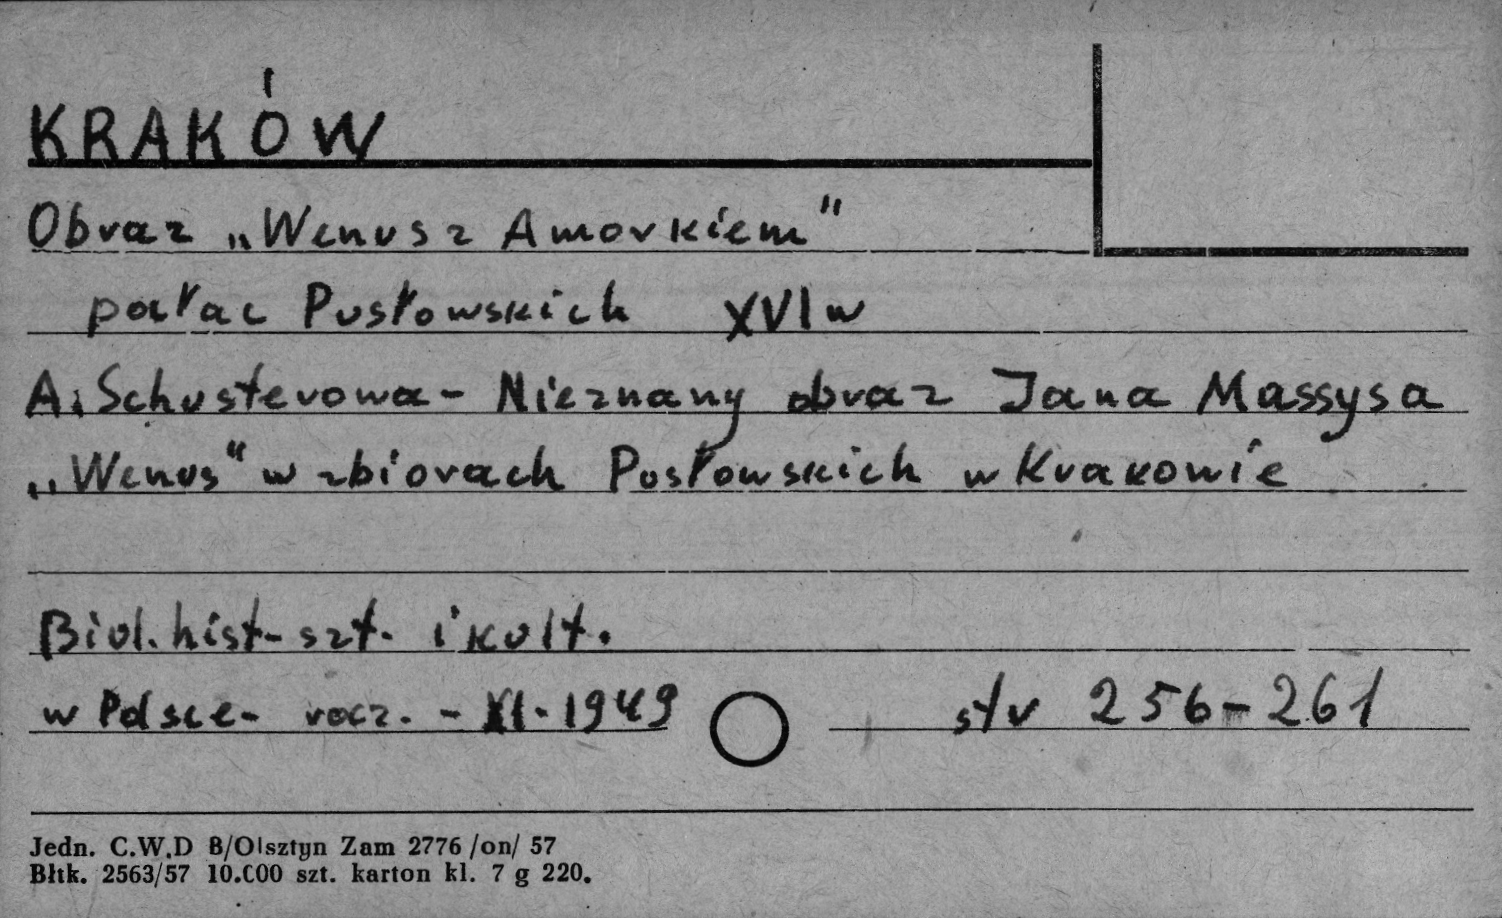 KRAKÓW
Obraz „Wenus z Amorkiem"
pałac Pusłowskich XVI w
A. Schusterowa - Nieznany obraz Jana Massysa
„Wenus" w zbiorach Pusłowskich w Krakowie
Biul. hist- szt. i kult.
w Polsce- rocz. - XI. 1949 str 256-261
Jedn. C.W.D B/Olsztyn Zam 2776 /on/ 57
Błtk. 2563/57 10.000 szt. karton kl. 7 g 220.